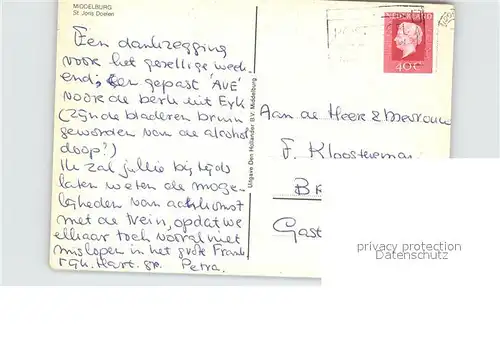 MIDDELBURG
St. Joris Doelen
Een dankzegging
voor het gezellige week
end; Een gepast 'AVE'
voor de berk uit Eyk
(zijn de bladeren bruin
geworden van de alcohol
doop?)
Ik zal jullie bij tijds
laten weten de moge-
lijkheden van aankomst
met de trein, opdat we
elkaar toch vooral niet
mislopen in het grote Frank
rijk. Hart. gr. Petra.
Uitgave Den Hollander B.V. Middelburg
NEDERLAND
40c
Aan de Heer & Mevrouw
F. Kloosterman
BR
Gast
privacy protection
Datenschutz